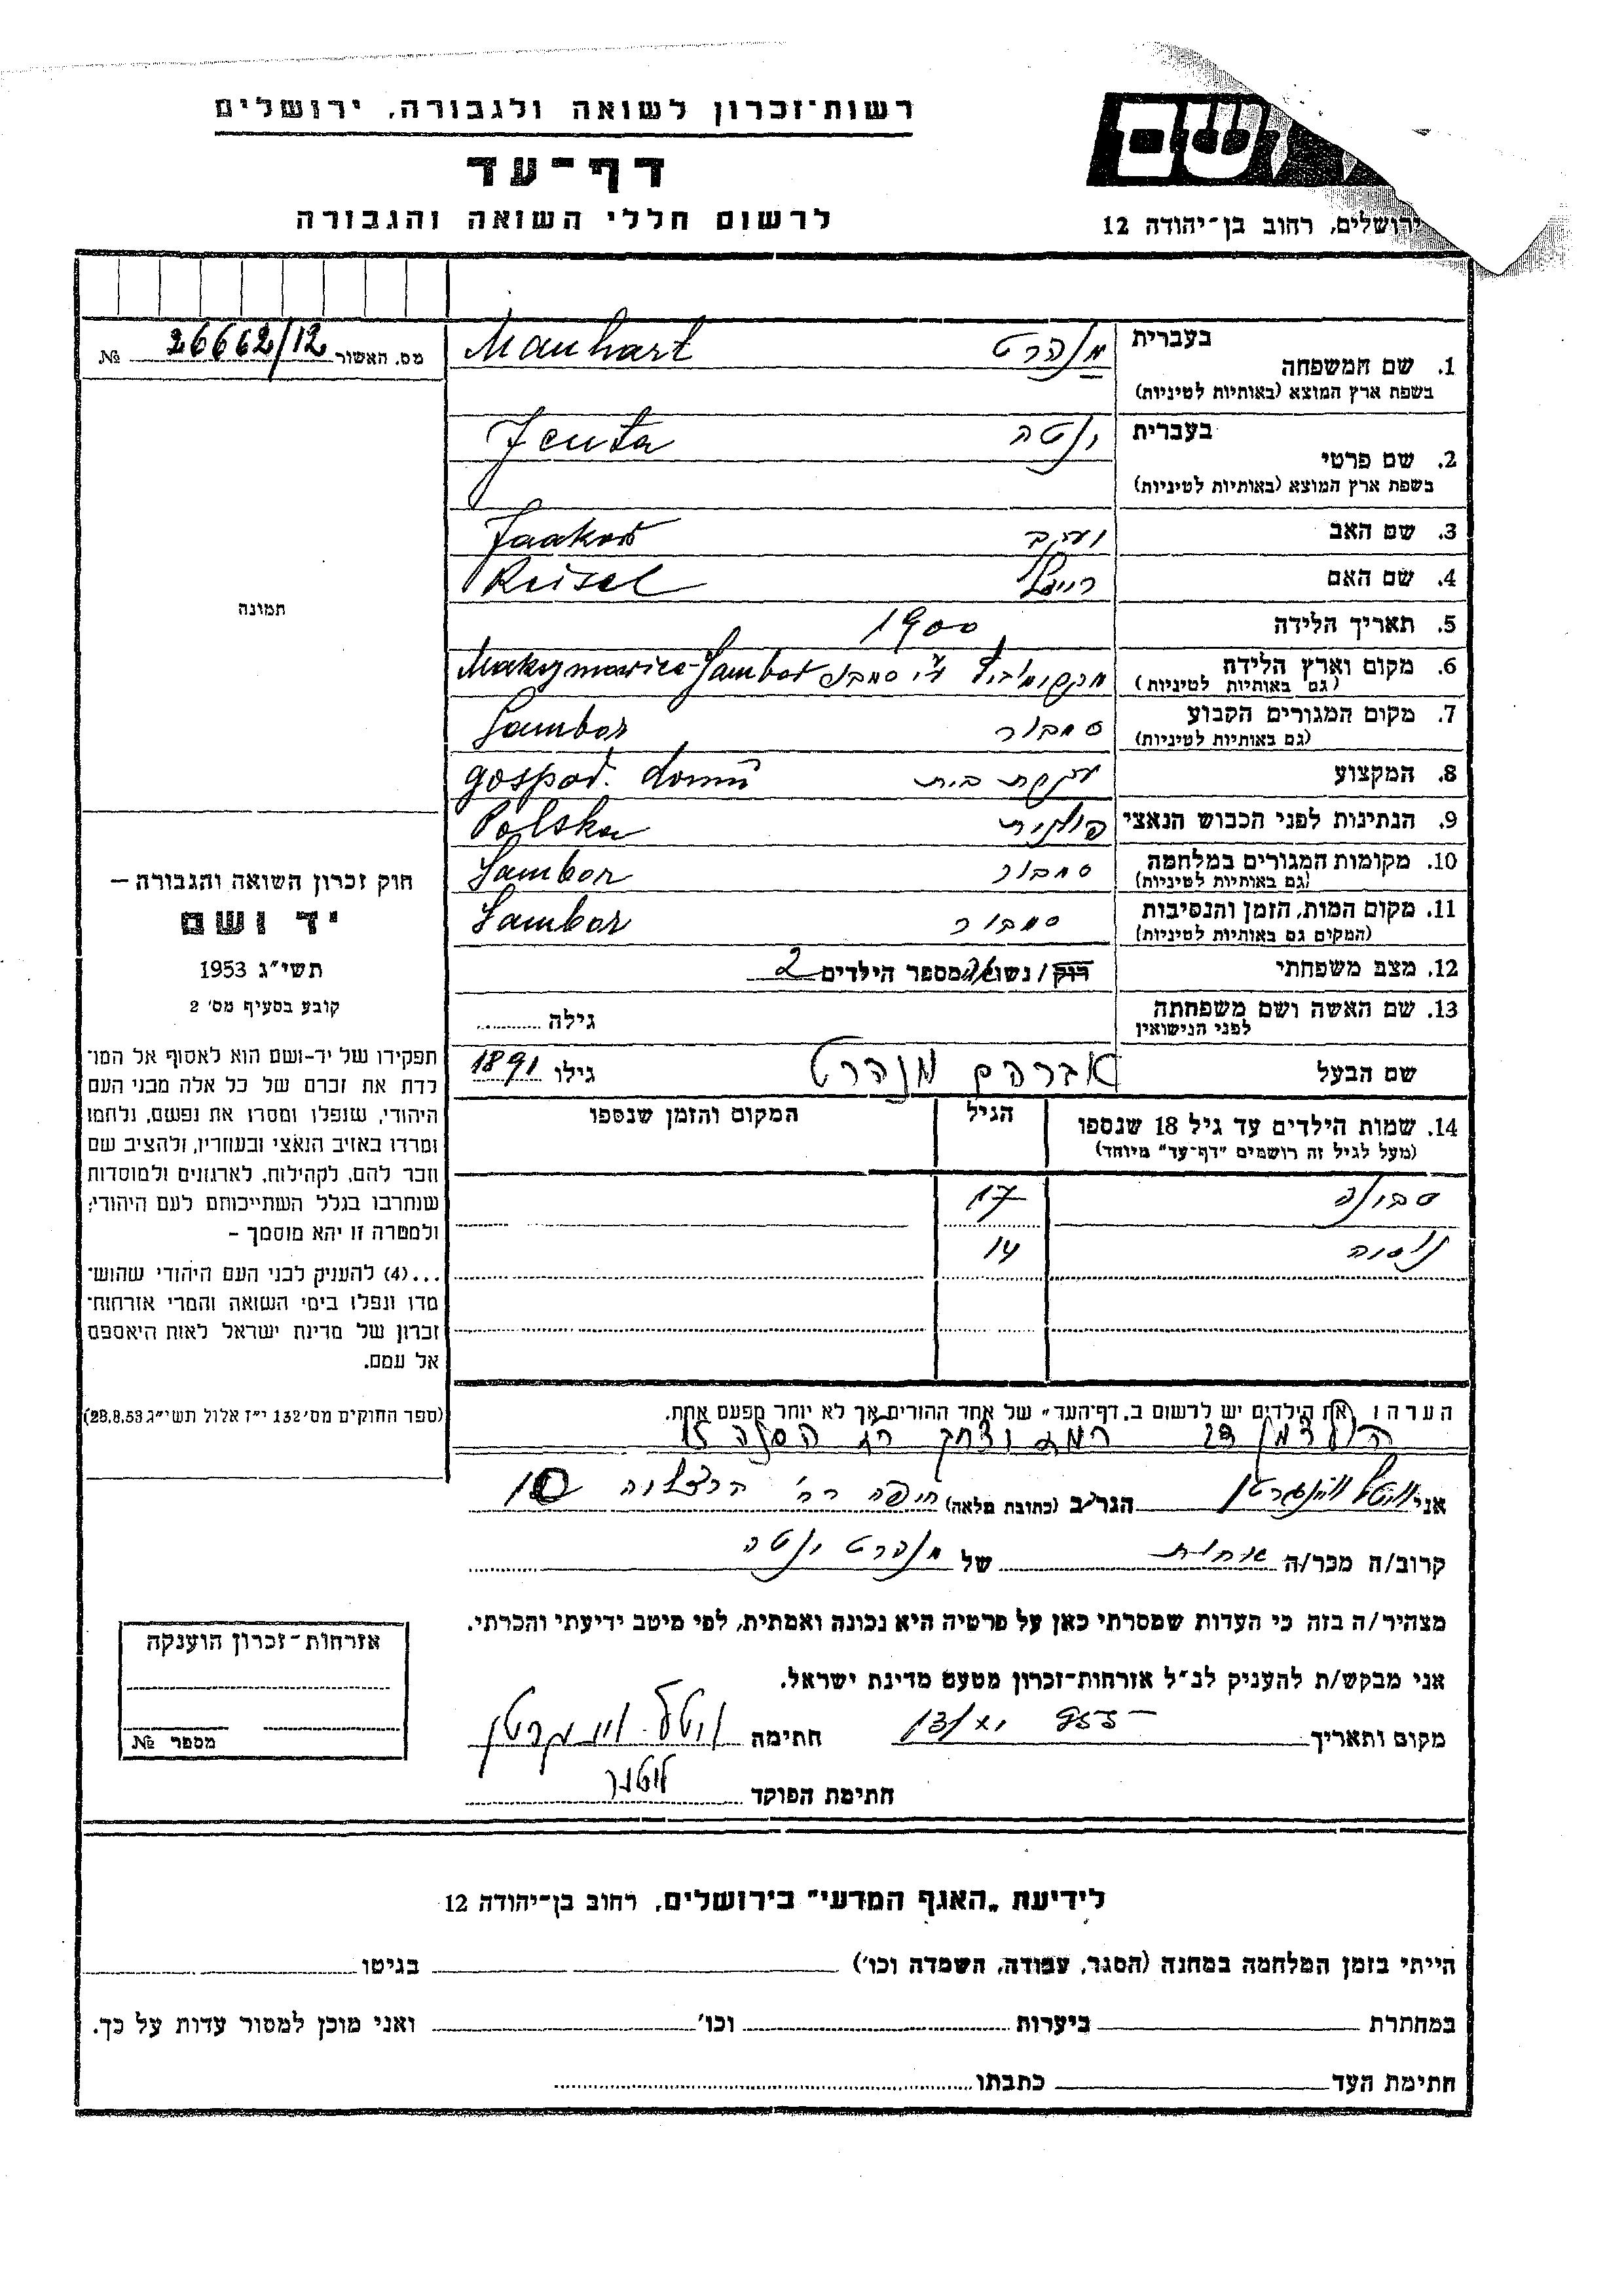 רשות־זכרון לשואה ולגבורה, ירושלים
דף־עד
לרשום חללי השואה והגבורה
ושם
ירושלים, רחוב בן־יהודה 12
מס. האשור 26662/12 №
1. שם המשפחה בעברית מנהרט Manhart
בשפת ארץ המוצא (באותיות לטיניות)
2. שם פרטי בעברית ינטה Jenta
בשפת ארץ המוצא (באותיות לטיניות)
3. שם האב יעקב Jaakob
4. שם האם רייזל Reisel
5. תאריך הלידה 1900
6. מקום וארץ הלידה ע"י סמבור Sambor
(גם באותיות לטיניות)
7. מקום המגורים הקבוע סמבור Sambor
(גם באותיות לטיניות)
8. המקצוע עקרת בית gospod. domu
9. הנתינות לפני הכבוש הנאצי פולנית Polska
10. מקומות המגורים במלחמה סמבור Sambor
(גם באותיות לטיניות)
11. מקום המות, הזמן והנסיבות סמבור Sambor
(המקום גם באותיות לטיניות)
12. מצב משפחתי רוק / נשוי/אה מספר הילדים 2
13. שם האשה ושם משפחתה גילה
לפני הנישואין
שם הבעל אברהם מנהרט גילו 1891
14. שמות הילדים עד גיל 18 שנספו הגיל המקום והזמן שנספו
(מעל לגיל זה רושמים "דף־עד" מיוחד)
17
14
הערה: את הילדים יש לרשום ב„דף־העד" של אחד ההורים אך לא יותר מפעם אחת.
תמונה
חוק זכרון השואה והגבורה —
יד ושם
תשי"ג 1953
קובע בסעיף מס' 2
תפקידו של יד-ושם הוא לאסוף אל המו־
לדת את זכרם של כל אלה מבני העם
היהודי, שנפלו ומסרו את נפשם, נלחמו
ומרדו באויב הנאצי ובעוזריו, ולהציב שם
וזכר להם, לקהילות, לארגונים ולמוסדות
שנחרבו בגלל השתייכותם לעם היהודי;
ולמטרה זו יהא מוסמך –
...(4) להעניק לבני העם היהודי שהוש־
מדו ונפלו בימי השואה והמרי אזרחות־
זכרון של מדינת ישראל לאות היאספם
אל עמם.
(ספר החוקים מס' 132 י"ז אלול תשי"ג 28.8.53)
אני הגר/ב (כתובת מלאה) חיפה רח' הרצליה 10
קרוב/ה מכר/ה אחות של מנהרט ינטה
מצהיר/ה בזה כי העדות שמסרתי כאן על פרטיה היא נכונה ואמתית, לפי מיטב ידיעתי והכרתי.
אני מבקש/ת להעניק לנ"ל אזרחות־זכרון מטעם מדינת ישראל.
מקום ותאריך חתימה
חתימת הפוקד
אזרחות־זכרון הוענקה
מספר №
לידיעת „האגף המדעי" בירושלים, רחוב בן־יהודה 12
הייתי בזמן המלחמה במחנה (הסגר, עבודה, השמדה וכו') בגיטו
במחתרת ביערות וכו' ואני מוכן למסור עדות על כך.
חתימת העד כתבתו